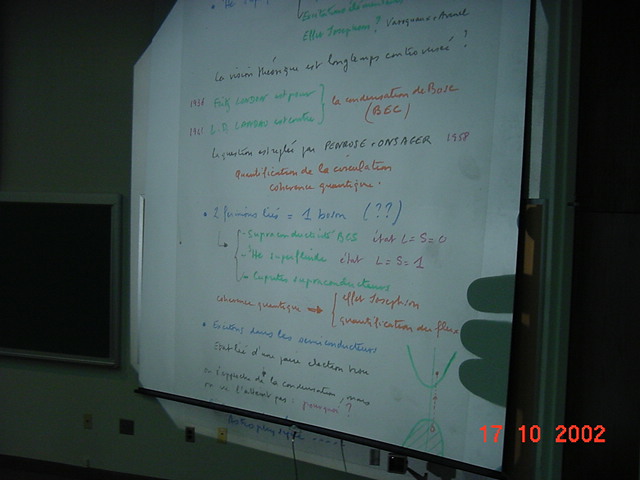 Effet Josephson ? Varoquaux + Avenel
La vision théorique est longtemps controversée ?
1938 Fritz LONDON est pour
1941 L.D. LANDAU est contre
la condensation de Bose
(BEC)
La question est réglée par PENROSE + ONSAGER 1958
quantification de la circulation
cohérence quantique.
• 2 fermions liés = 1 boson (??)
- Supraconductivité BCS état L=S=0
- ³He superfluide état L=S=1
- Cuprates supraconducteurs
cohérence quantique → effet Josephson
quantification du flux
• Excitons dans les semiconducteurs
d'une paire electron trou
on s'approche de la condensation, mais
on ne l'atteint pas : pourquoi ?
Astrophysique ....
17 10 2002